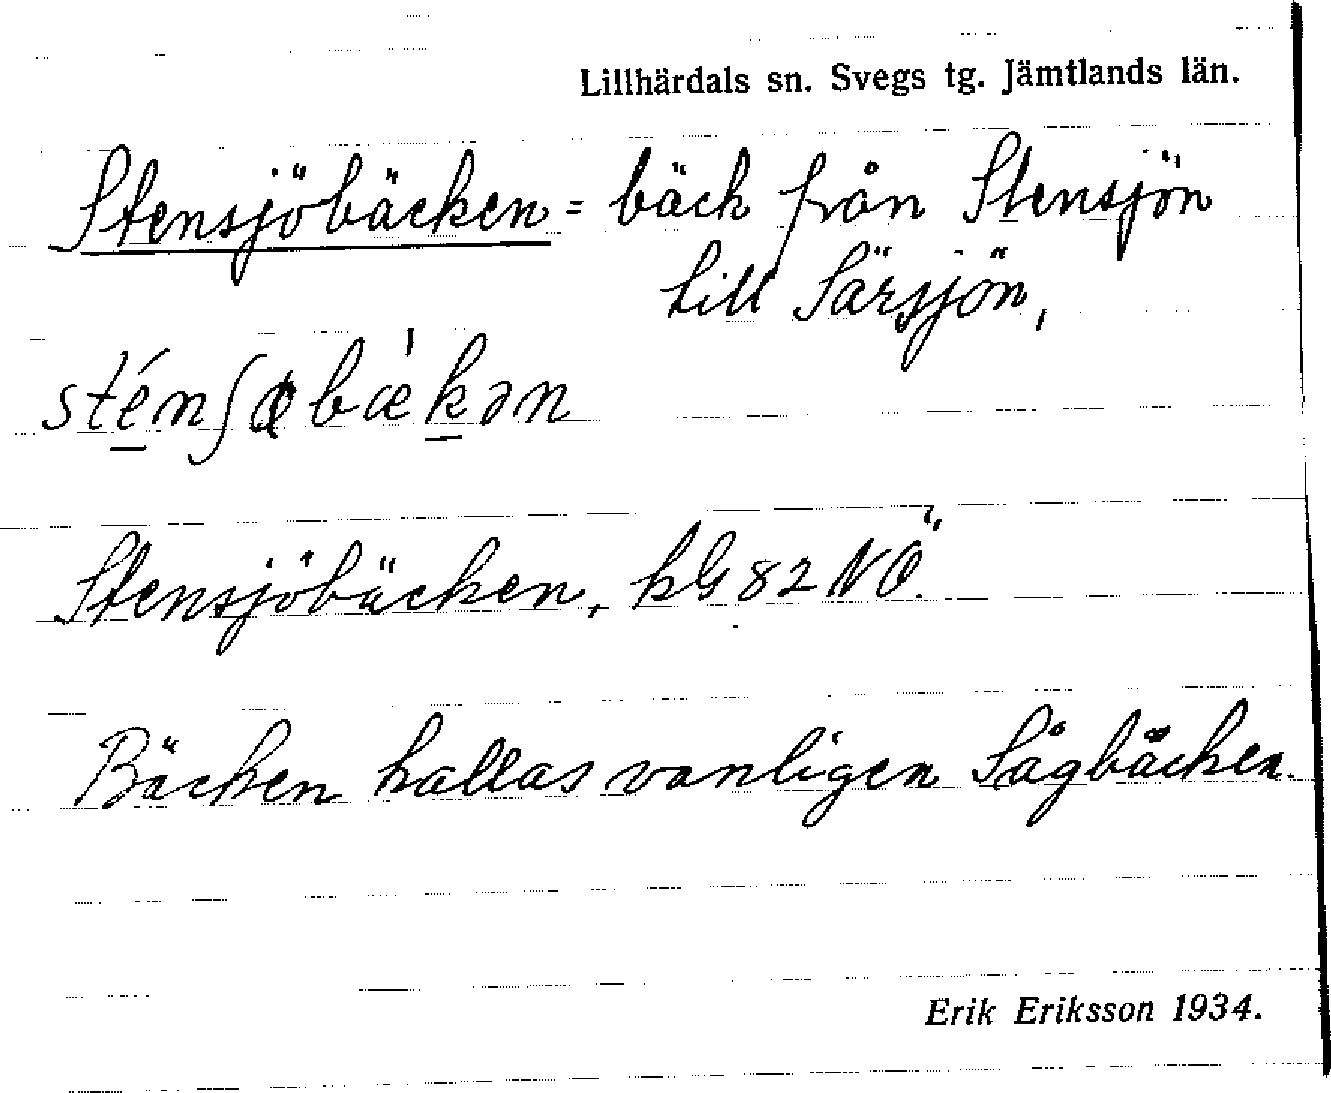 Lillhärdals sn. Svegs tg. Jämtlands län.
Stensjöbäcken = bäck från Stensjön
till Särsjön,
sténʃøbæ'kən
Stensjöbäcken, kG 82 NÖ.
Bäcken kallas vanligen Sågbäcken.
Erik Eriksson 1934.